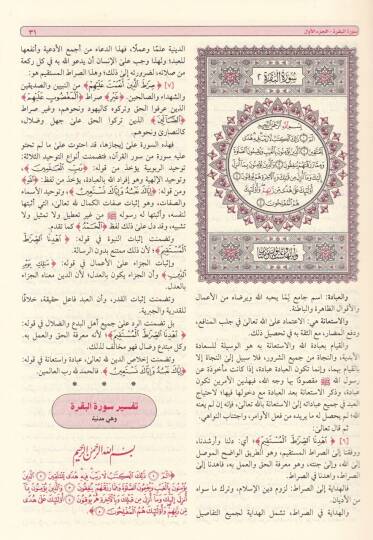 سورة البقرة - الجزء الأول
٣١
سُورَةُ الْبَقَرَةِ ٢
والعبادة: اسم جامع لِمَا يحبه الله ويرضاه من الأعمال
والأقوال الظاهرة والباطنة.
والاستعانة هي: الاعتماد على الله تعالى في جلب المنافع،
ودفع المضار، مع الثقة به في تحصيل ذلك.
والقيام بعبادة الله والاستعانة به هو الوسيلة للسعادة
الأبدية، والنجاة من جميع الشرور، فلا سبيل إلى النجاة إلا
بالقيام بهما، وإنما تكون العبادة عبادة، إذا كانت مأخوذة عن
رسول الله ﷺ مقصودًا بها وجه الله، فبهذين الأمرين تكون
عبادة، وذكر الاستعانة بعد العبادة مع دخولها فيها؛ لاحتياج
العبد في جميع عباداته إلى الاستعانة بالله تعالى، فإنه إن لم يعنه
الله؛ لم يحصل له ما يريده من فعل الأوامر، واجتناب النواهي.
[٦] ﴿اهْدِنَا الصِّرَاطَ الْمُسْتَقِيمَ﴾؛ أي: دلنا وأرشدنا،
ووفقنا إلى الصراط المستقيم، وهو الطريق الواضح الموصل
إلى الله، وإلى جنته، وهو معرفة الحق والعمل به، فاهدنا إلى
الصراط، واهدنا في الصراط.
فالهداية إلى الصراط: لزوم دين الإسلام، وترك ما سواه
من الأديان.
والهداية في الصراط، تشمل الهداية لجميع التفاصيل
الدينية علمًا وعملًا، فهذا الدعاء من أجمع الأدعية وأنفعها
للعبد؛ ولهذا وجب على الإنسان أن يدعو الله به في كل ركعة
من صلاته، لضرورته إلى ذلك؛ وهذا الصراط المستقيم هو:
[٧] ﴿صِرَاطَ الَّذِينَ أَنْعَمْتَ عَلَيْهِمْ﴾ من النبيين والصديقين
والشهداء والصالحين. ﴿غَيْرِ﴾ صراط ﴿الْمَغْضُوبِ عَلَيْهِمْ﴾
الذين عرفوا الحق وتركوه كاليهود ونحوهم، ﴿وَلَا﴾ صراط
﴿الضَّالِّينَ﴾ الذين تركوا الحق على جهل وضلال،
كالنصارى ونحوهم.
فهذه السورة على إيجازها، قد احتوت على ما لم تحتو
عليه سورة من سور القرآن، فتضمنت أنواع التوحيد الثلاثة:
توحيد الربوبية يؤخذ من قوله: ﴿رَبِّ الْعَالَمِينَ﴾.
وتوحيد الإلهية وهو إفراد الله بالعبادة، يؤخذ من لفظ: ﴿اللَّهِ﴾
ومن قوله: ﴿إِيَّاكَ نَعْبُدُ وَإِيَّاكَ نَسْتَعِينُ﴾. وتوحيد الأسماء
والصفات، وهو إثبات صفات الكمال لله تعالى، التي أثبتها
لنفسه، وأثبتها له رسوله ﷺ من غير تعطيل ولا تمثيل ولا
تشبيه، وقد دل على ذلك لفظ ﴿الْحَمْدُ﴾ كما تقدم.
وتضمنت إثبات النبوة في قوله: ﴿اهْدِنَا الصِّرَاطَ
الْمُسْتَقِيمَ﴾؛ لأن ذلك ممتنع بدون الرسالة.
وإثبات الجزاء على الأعمال في قوله: ﴿مَالِكِ يَوْمِ
الدِّينِ﴾ وأن الجزاء يكون بالعدل؛ لأن الدين معناه الجزاء
بالعدل.
وتضمنت إثبات القدر، وأن العبد فاعل حقيقة، خلافًا
للقدرية والجبرية.
بل تضمنت الرد على جميع أهل البدع والضلال في قوله:
﴿اهْدِنَا الصِّرَاطَ الْمُسْتَقِيمَ﴾؛ لأنه معرفة الحق والعمل به.
وكل مبتدع وضال فهو مخالف لذلك.
وتضمنت إخلاص الدين لله تعالى، عبادة واستعانة في قوله:
﴿إِيَّاكَ نَعْبُدُ وَإِيَّاكَ نَسْتَعِينُ﴾. فالحمد لله رب العالمين.
تفسير سورة البقرة
وهي مدنية
بسم الله الرحمن الرحيم
﴿الم ۝ ذَٰلِكَ الْكِتَابُ لَا رَيْبَ فِيهِ هُدًى لِّلْمُتَّقِينَ ۝ الَّذِينَ
يُؤْمِنُونَ بِالْغَيْبِ وَيُقِيمُونَ الصَّلَاةَ وَمِمَّا رَزَقْنَاهُمْ يُنفِقُونَ ۝ وَالَّذِينَ يُؤْمِنُونَ بِمَا
أُنزِلَ إِلَيْكَ وَمَا أُنزِلَ مِن قَبْلِكَ وَبِالْآخِرَةِ هُمْ يُوقِنُونَ ۝ أُولَٰئِكَ عَلَىٰ هُدًى
مِّن رَّبِّهِمْ وَأُولَٰئِكَ هُمُ الْمُفْلِحُونَ ۝﴾